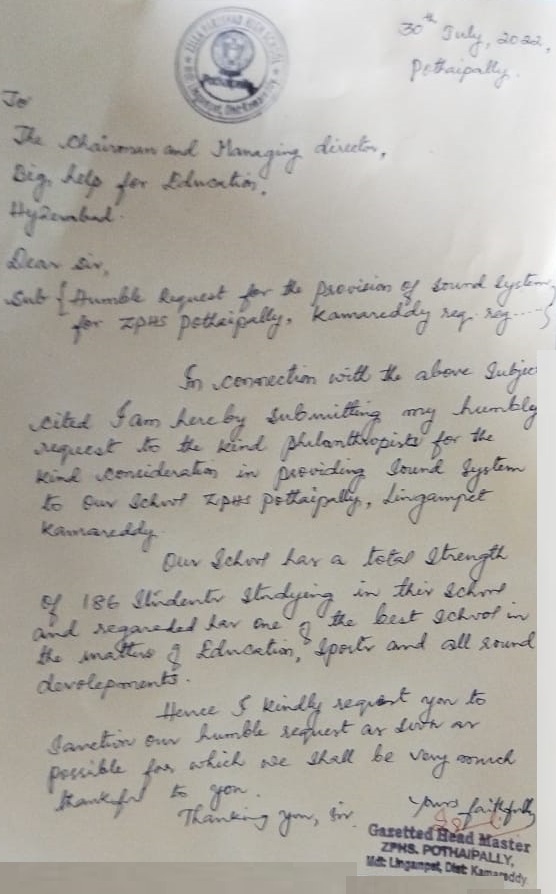 30th July, 2022,
Pothaipally.
ZILLA PARISHAD HIGH SCHOOL
To
The Chairman and Managing director,
Big help for Education,
Hyderabad.
Dear Sir,
Sub { Humble Request for the provision of Sound System
for ZPHS Pothaipally, Kamareddy reg. reg....}
In connection with the above Subjec
cited I am hereby submitting my humbly
request to the kind philanthropists for the
kind consideration in providing Sound System
to our School ZPHS Pothaipally, Lingampet
Kamareddy.
Our School has a total Strength
of 186 Students Studying in this School
and regareded has one of the best School in
the matters of Education, Sports and all round
devolepments.
Hence I kindly request you to
Sanction our humble request as soon as
possible for which we shall be very much
thankful to you.
Thanking you, Sir.
Yours faithfully
Gazetted Head Master
ZPHS. POTHAIPALLY,
Mdl: Lingampet, Dist: Kamareddy